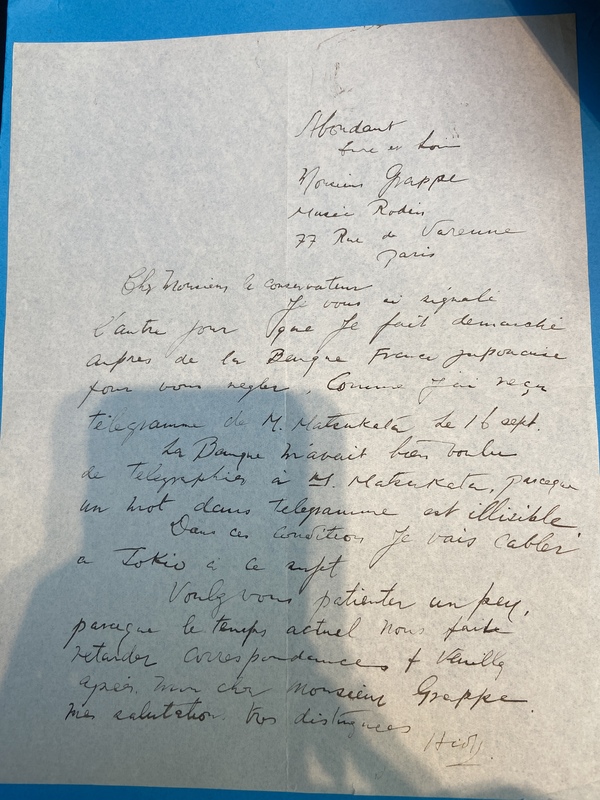 Abondant
Eure et Loir
Monsieur Grappe
Musée Rodin
77 Rue de Varenne
Paris
Cher Monsieur le conservateur
Je vous ai signalé
l'autre jour que Je fait demarché
aupres de la Banque Franco japonaise
pour vous regler. Comme J'ai reçu
télegramme de M. Matsukata le 16 sept.
La Banque m'avait bien voulu
de telegraphier à M. Matsukata, parceque
un mot dans telegramme est illisible
Dans ces conditions Je vais cabler
a Tokio à ce sujet
Voulez vous patienter un peu,
parceque le temps actuel nous fait
retarder correspondances + Veuillez
agréer. mon cher Monsieur Grappe.
mes salutations tres distinguees